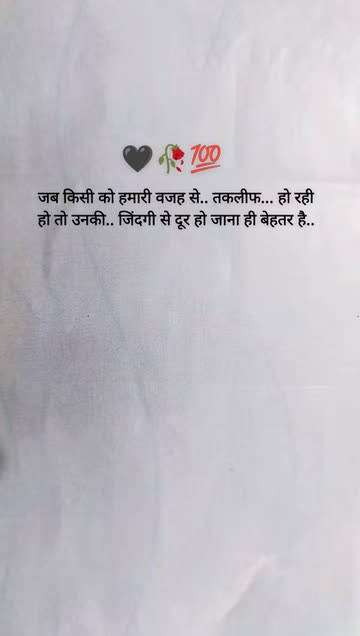 🖤🥀💯
जब किसी को हमारी वजह से.. तकलीफ... हो रही
हो तो उनकी.. जिंदगी से दूर हो जाना ही बेहतर है..